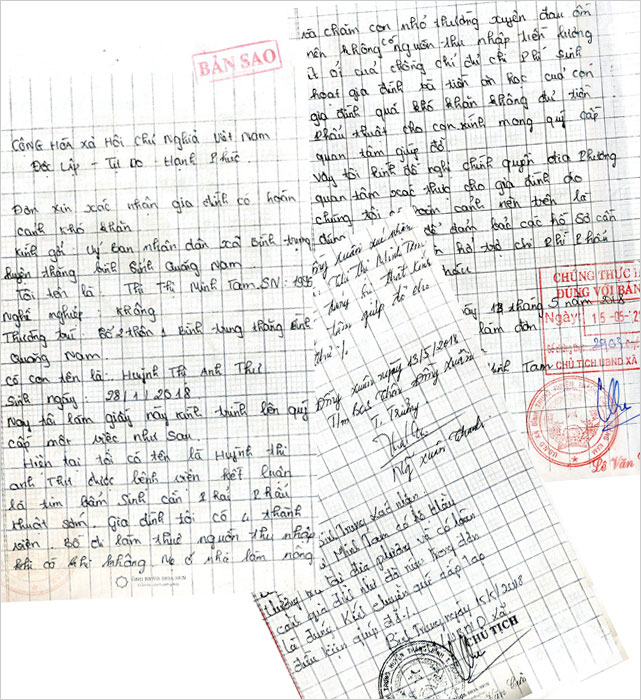 BẢN SAO
CÔNG Hòa xã Hội Chủ Nghĩa Việt Nam
Độc Lập - Tự Do - Hạnh Phúc
Đơn xin xác nhận gia đình có hoàn
cảnh khó khăn
Kính gởi: Uỷ Ban nhân dân xã Bình trung
huyện thăng bình tỉnh Quảng Nam.
Tôi tên là: Thi Thị Minh Tam. SN: 1995
Nghề nghiệp: không
Thường trú: tổ 2 thôn 1 Bình trung thăng Bình
Quảng Nam.
có con tên là: Huỳnh Thị Anh Thư
Sinh ngày: 28/1/2018
Nay tôi làm giấy này kính trình lên quý
cấp một việc như sau.
Hiện tại tôi có tên là Huỳnh thị
anh Thư được bệnh viện kết luận
là tim bẩm sinh cần phải phẩu
thuật sớm. Gia đình tôi có 4 thành
viên. Bố đi làm thuê nguồn thu nhập
khi có khi không. Mẹ ở nhà làm nông
và chăm con nhỏ thường xuyên đau ốm
nên không có nguồn thu nhập tiền lương
ít ỏi của chồng chỉ đủ chi phí sinh
hoạt gia đình và tiền ăn học của con
gia đình quá khó khăn không đủ tiền
phẩu thuật cho con. kính mong quý cấp
quan tâm giúp đỡ
Vậy tôi kính đề nghị chính quyền địa phương
quan tâm xác thực cho gia đình do
chúng tôi có hoàn cảnh nêu trên là
đúng để đảm bảo các hồ sơ cần
hỗ trợ chi phí phẩu
tháng 5 năm 2018
làm đơn
Tam
CHỨNG THỰC
ĐÚNG VỚI BẢN
Ngày: 15-05-2
2903
CHỦ TỊCH UBND XÃ
Lê Văn
Thi Thị Minh Tam
giúp đỡ cho
Đồng xuân ngày 13/5/2018
Tm BCĐ thôn Đồng Xuân
T. Trưởng
Ng xuân thanh
Trung xác nhận
Minh Tam có hộ khẩu
Thường trú tại địa phương và có hoàn
cảnh gia đình như đã nêu trong đơn
là đúng. Kính chuyển quý cấp tạo
điều kiện giúp đỡ./.
Bình Trung, ngày 15/5/2018
CHỦ TỊCH